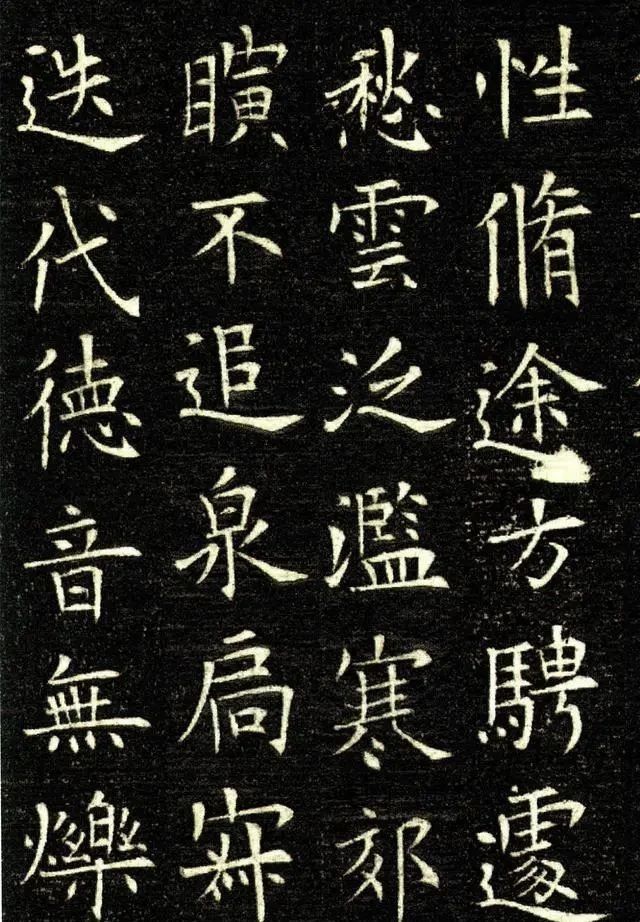 性脩途方騁遽
愁雲泛濫寒郊
瞚不追泉扃
迭代德音無爍